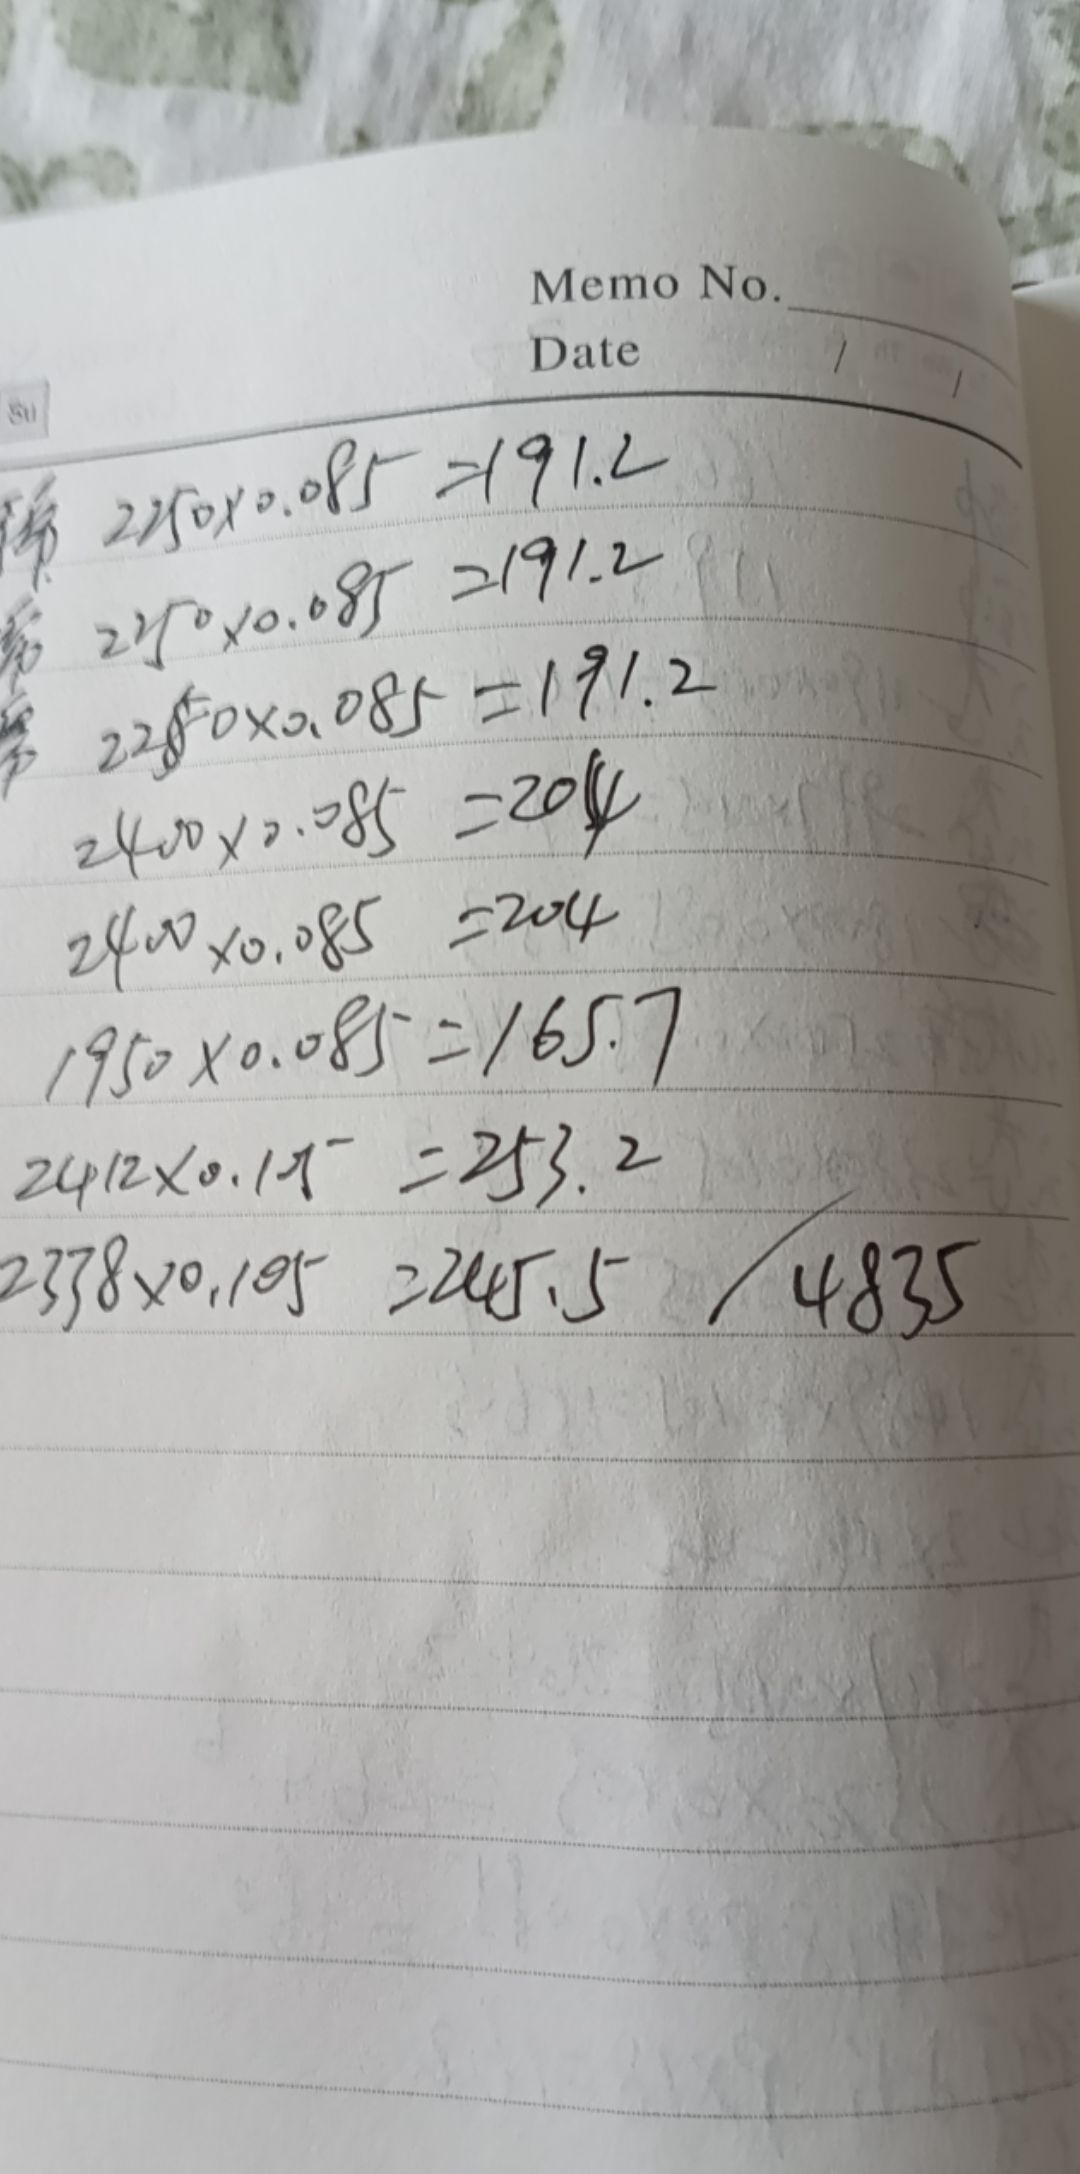 Memo No.
Date / /
Su
2250×0.085 =191.2
2250×0.085 =191.2
2250×0.085 =191.2
2400×0.085 =204
2400×0.085 =204
1950×0.085=165.7
2412×0.105 =253.2
2338×0.105 =245.5 / 4835